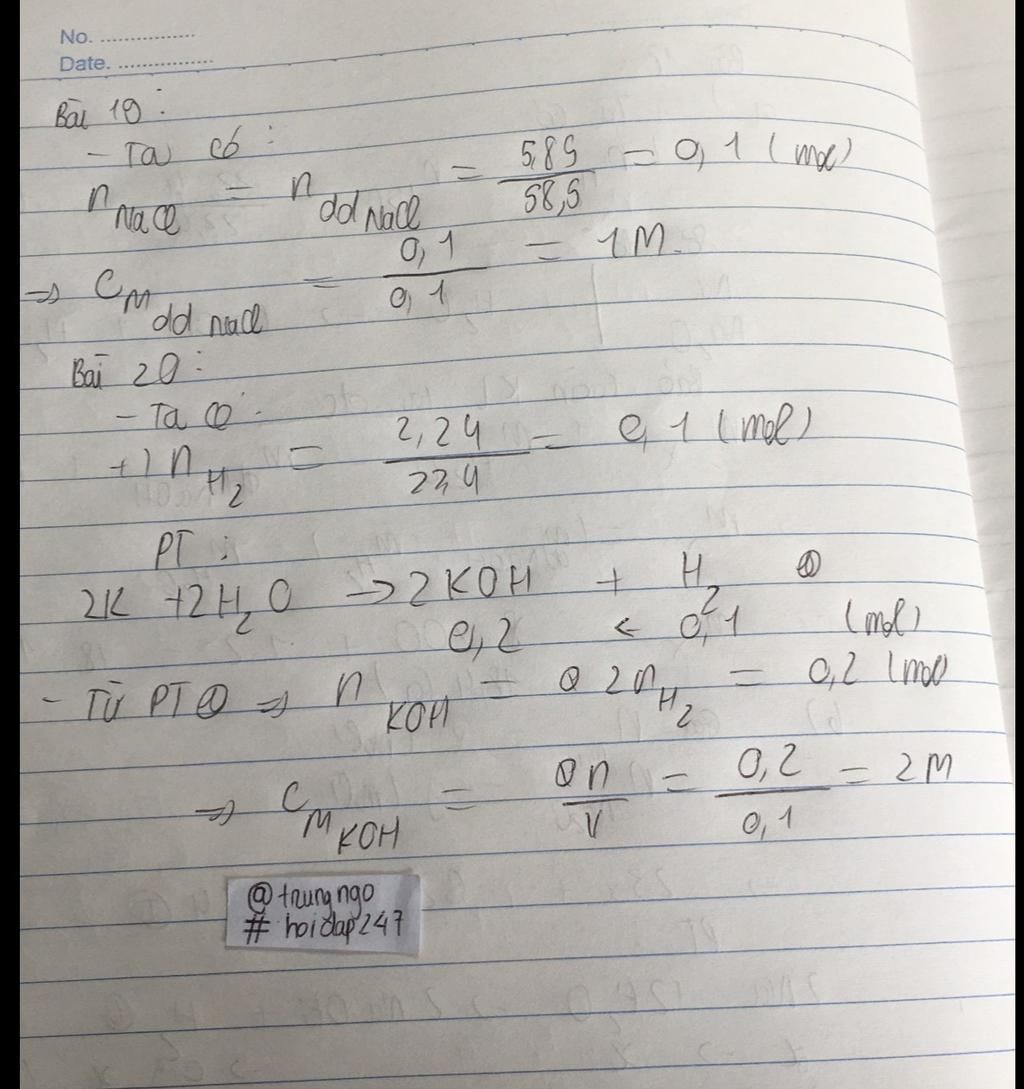 No. ...............
Date. ...............
Bài 19 :
- Ta có :
n NaCl = n dd NaCl = 5,85 / 58,5 = 0,1 ( mol )
=> C M dd NaCl = 0,1 / 0,1 = 1M.
Bài 20 :
- Ta có :
+) n H2 = 2,24 / 22,4 = 0,1 ( mol )
PT :
2K + 2H2O -> 2KOH + H2 ①
0,2 < 0,1 (mol)
- Từ PT ① => n KOH = 2n H2 = 0,2 (mol)
=> C M KOH = n / V = 0,2 / 0,1 = 2M
@trungngo
# hoidap247